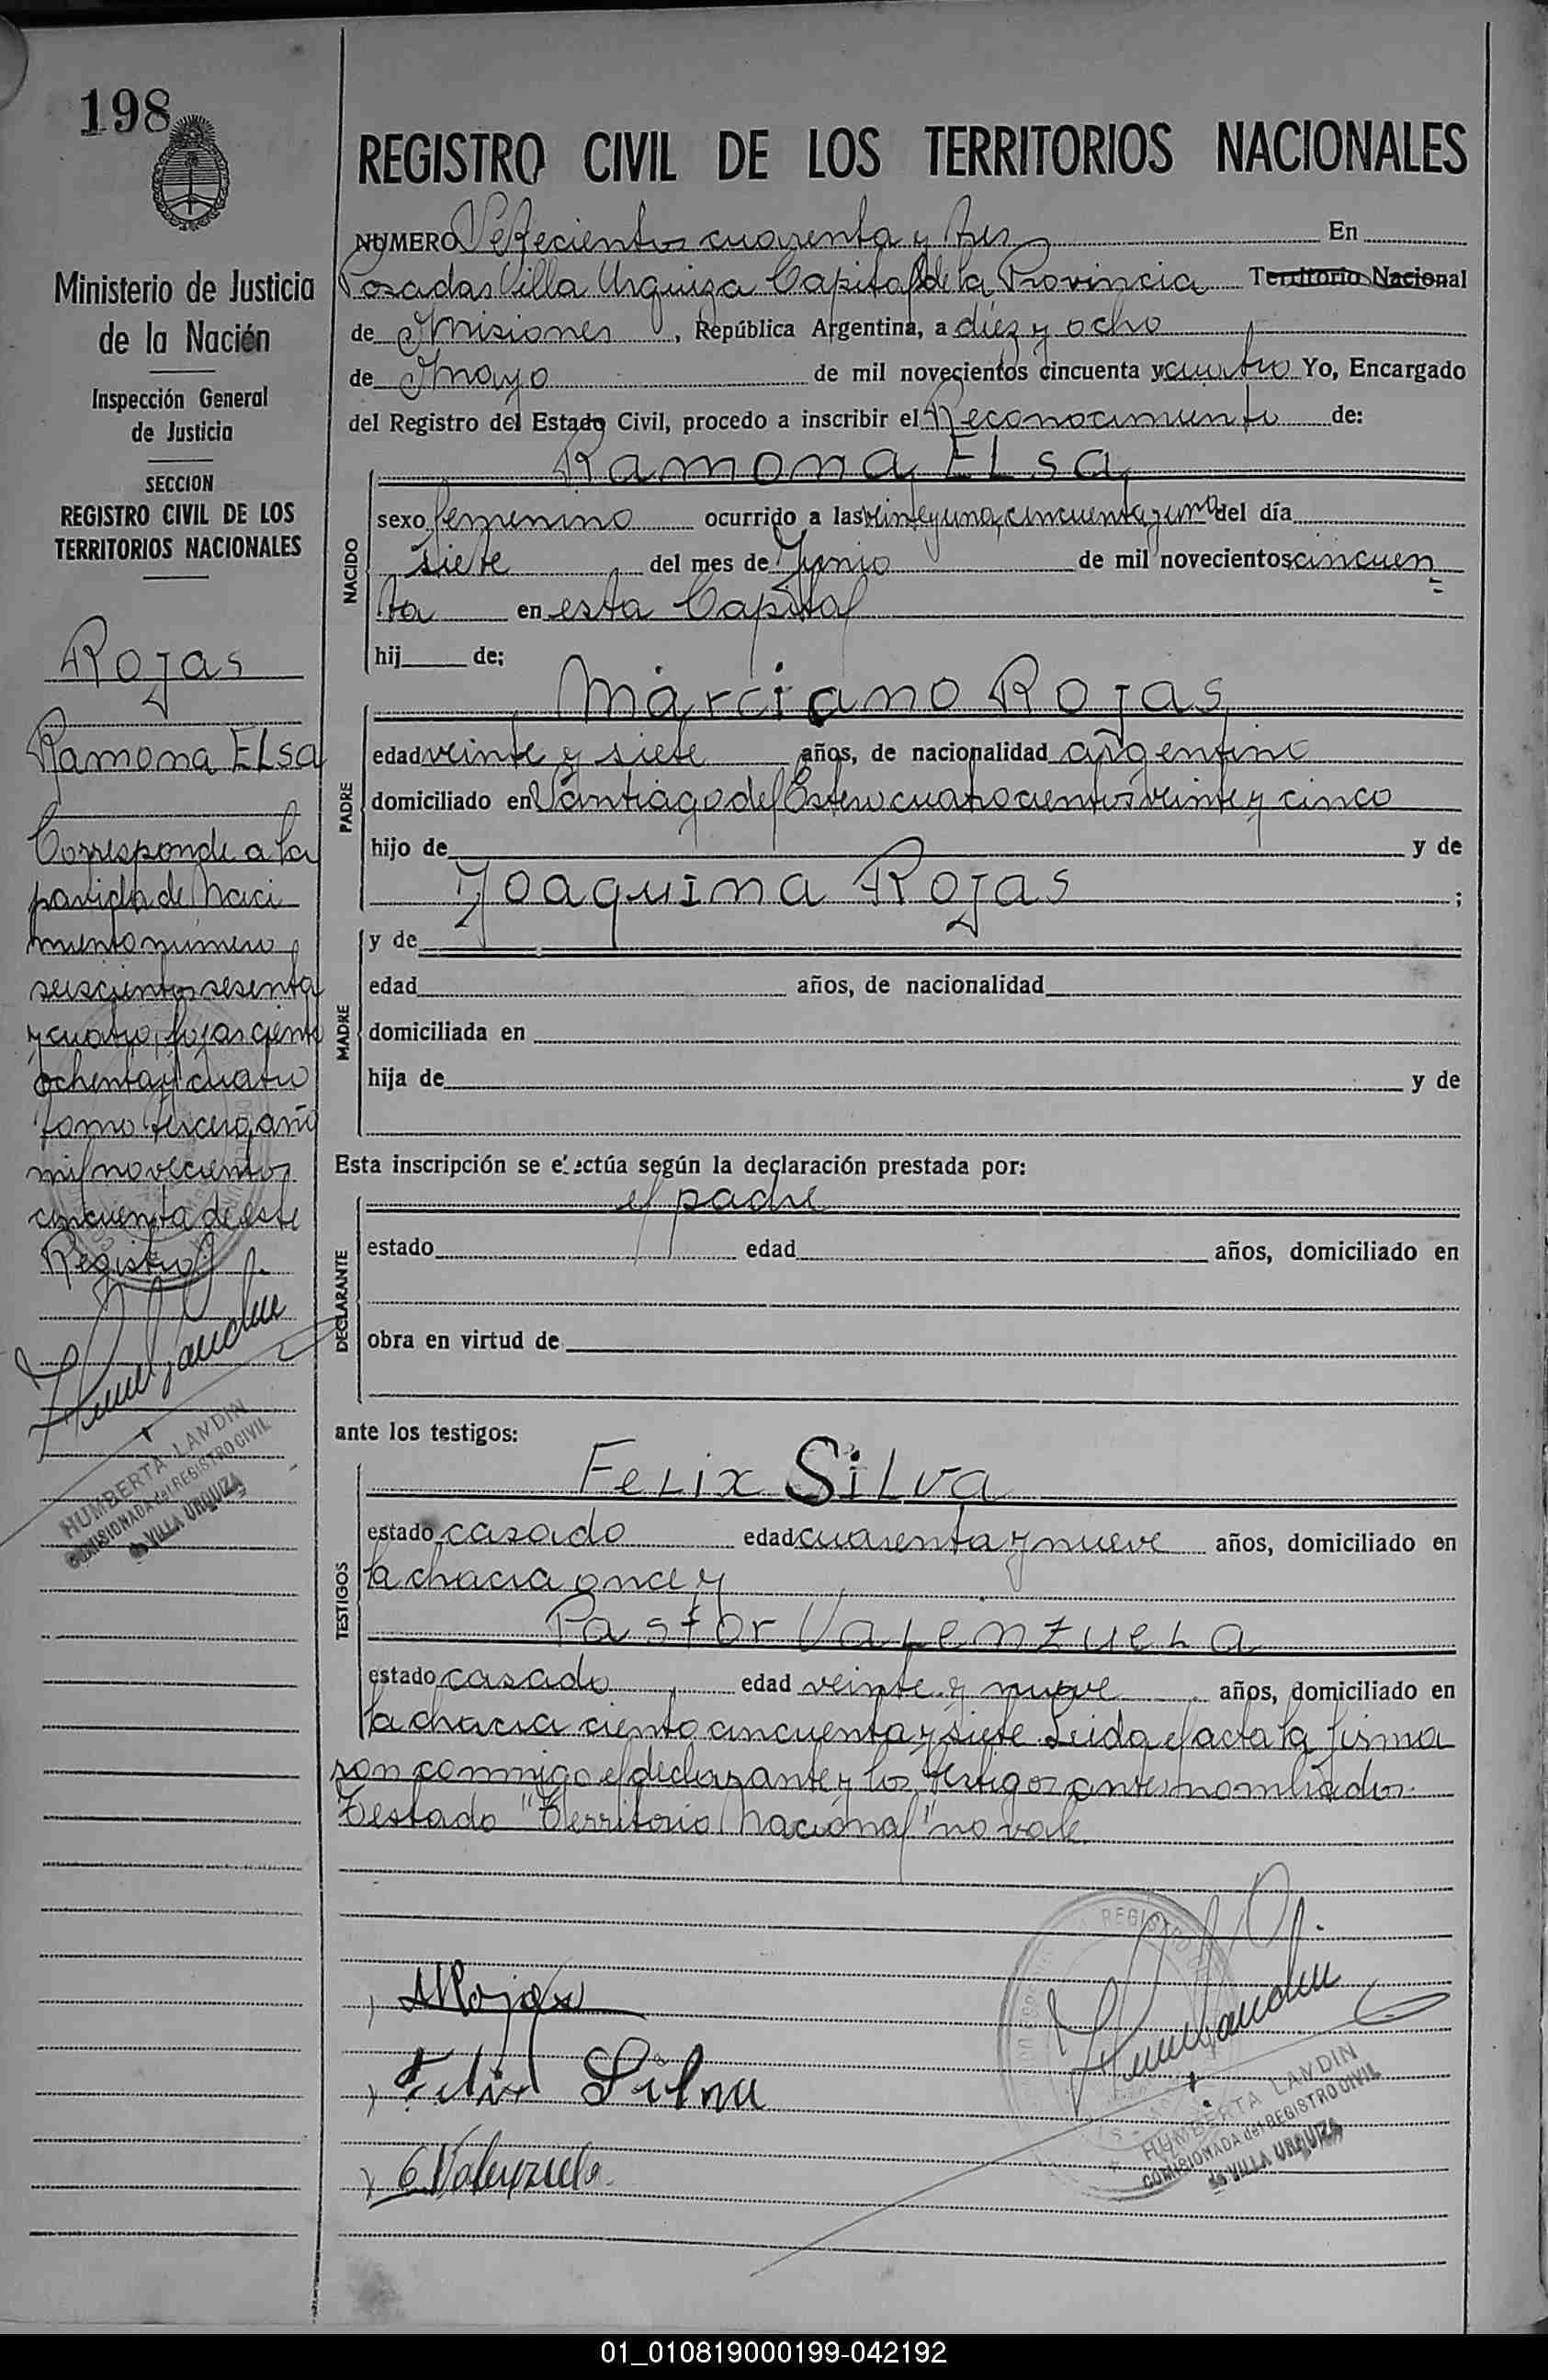 198
Ministerio de Justicia
de la Nación
Inspección General
de Justicia
SECCION
REGISTRO CIVIL DE LOS
TERRITORIOS NACIONALES
Rojas
Ramona ELsa
Corresponde a la
partida de Naci
miento número
seiscientos sesenta
y cuatro, fojas ciento
ochenta y cuatro
tomo tercero, año
mil novecientos
cincuenta de este
Registro
HUMBERTA LANDIN
COMISIONADA del REGISTRO CIVIL
de VILLA URQUIZA
REGISTRO CIVIL DE LOS TERRITORIOS NACIONALES
NUMERO cuarenta y tres En
Posadas Villa Urquiza Capital de la Provincia Territorio Nacional
de Misiones, República Argentina, a diez y ocho
de Mayo de mil novecientos cincuenta y cuatro Yo, Encargado
del Registro del Estado Civil, procedo a inscribir el Reconocimiento de:
Ramona ELsa
NACIDO
sexo femenino ocurrido a las veinte y una, cincuenta y un del día
siete del mes de Junio de mil novecientos cincuen
ta en esta Capital
hij de:
Marciano Rojas
PADRE
edad veinte y siete años, de nacionalidad argentino
domiciliado en Santiago del Estero cuatrocientos veinte y cinco
hijo de y de
Joaquina Rojas ;
MADRE
y de
edad años, de nacionalidad
domiciliada en
hija de y de
Esta inscripción se efectúa según la declaración prestada por:
el padre
DECLARANTE
estado edad años, domiciliado en
obra en virtud de
ante los testigos:
FeLix SiLva
TESTIGOS
estado casado edad cuarenta y nueve años, domiciliado en
la chacra once y
Pastor VaLenzueLa
estado casado edad veinte y nueve años, domiciliado en
la chacra ciento cincuenta y siete. Leida el acta la firma
ron conmigo el declarante y los testigos antes nombrados.
Testado "Territorio Nacional" no vale.
MRojas
Felix Silva
Valenzuela
REGISTRO
HUMBERTA LANDIN
COMISIONADA del REGISTRO CIVIL
de VILLA URQUIZA
01_010819000199-042192